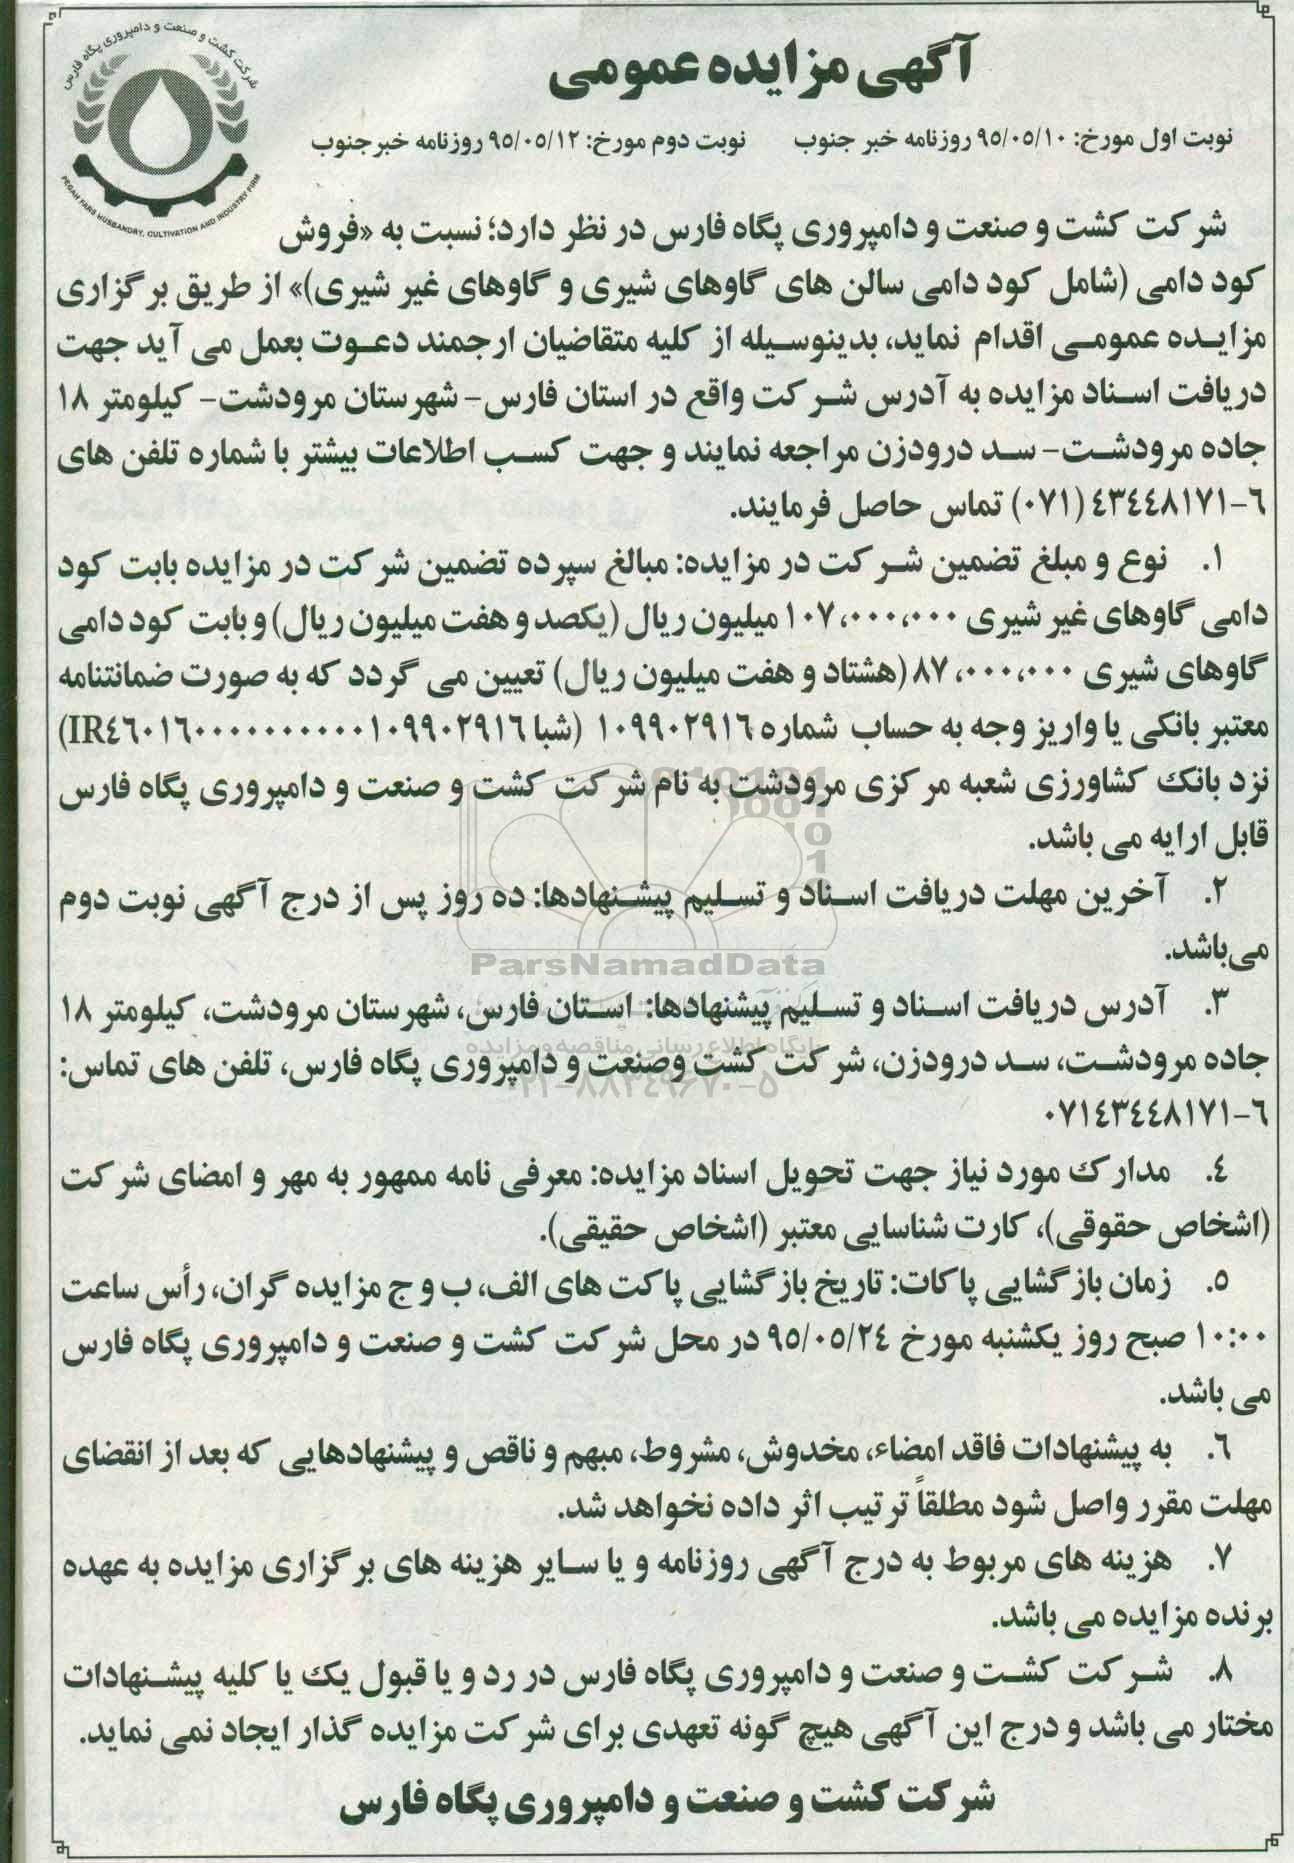 آگهی مزایده عمومی
شرکت کشت و صنعت و دامپروری پگاه فارس
PEGAH FARS HUSBANDRY, CULTIVATION AND INDUSTRY FIRM
نوبت اول مورخ: ۹۵/۰۵/۱۰ روزنامه خبر جنوب نوبت دوم مورخ: ۹۵/۰۵/۱۲ روزنامه خبرجنوب
شرکت کشت و صنعت و دامپروری پگاه فارس در نظر دارد؛ نسبت به «فروش
کود دامی (شامل کود دامی سالن های گاوهای شیری و گاوهای غیر شیری)» از طریق برگزاری
مزایده عمومی اقدام نماید، بدینوسیله از کلیه متقاضیان ارجمند دعوت بعمل می آید جهت
دریافت اسناد مزایده به آدرس شرکت واقع در استان فارس- شهرستان مرودشت- کیلومتر ۱۸
جاده مرودشت- سد درودزن مراجعه نمایند و جهت کسب اطلاعات بیشتر با شماره تلفن های
۶-۴۳۴۴۸۱۷۱ (۰۷۱) تماس حاصل فرمایند.
۱. نوع و مبلغ تضمین شرکت در مزایده: مبالغ سپرده تضمین شرکت در مزایده بابت کود
دامی گاوهای غیر شیری ۱۰۷،۰۰۰،۰۰۰ میلیون ریال (یکصد و هفت میلیون ریال) و بابت کود دامی
گاوهای شیری ۸۷،۰۰۰،۰۰۰ (هشتاد و هفت میلیون ریال) تعیین می گردد که به صورت ضمانتنامه
معتبر بانکی یا واریز وجه به حساب شماره ۱۰۹۹۰۲۹۱۶ (شبا IR۴۶۰۱۶۰۰۰۰۰۰۰۰۰۰۰۱۰۹۹۰۲۹۱۶)
نزد بانک کشاورزی شعبه مرکزی مرودشت به نام شرکت کشت و صنعت و دامپروری پگاه فارس
قابل ارایه می باشد.
۲. آخرین مهلت دریافت اسناد و تسلیم پیشنهادها: ده روز پس از درج آگهی نوبت دوم
می‌باشد.
ParsNamadData
۳. آدرس دریافت اسناد و تسلیم پیشنهادها: استان فارس، شهرستان مرودشت، کیلومتر ۱۸
پایگاه اطلاع رسانی مناقصه و مزایده
جاده مرودشت، سد درودزن، شرکت کشت وصنعت و دامپروری پگاه فارس، تلفن های تماس:
۰۲۱-۸۸۳۴۹۶۷۰-۵
۶-۰۷۱۴۳۴۴۸۱۷۱
۴. مدارک مورد نیاز جهت تحویل اسناد مزایده: معرفی نامه ممهور به مهر و امضای شرکت
(اشخاص حقوقی)، کارت شناسایی معتبر (اشخاص حقیقی).
۵. زمان بازگشایی پاکات: تاریخ بازگشایی پاکت های الف، ب و ج مزایده گران، رأس ساعت
۱۰:۰۰ صبح روز یکشنبه مورخ ۹۵/۰۵/۲۴ در محل شرکت کشت و صنعت و دامپروری پگاه فارس
می باشد.
۶. به پیشنهادات فاقد امضاء، مخدوش، مشروط، مبهم و ناقص و پیشنهادهایی که بعد از انقضای
مهلت مقرر واصل شود مطلقاً ترتیب اثر داده نخواهد شد.
۷. هزینه های مربوط به درج آگهی روزنامه و یا سایر هزینه های برگزاری مزایده به عهده
برنده مزایده می باشد.
۸. شرکت کشت و صنعت و دامپروری پگاه فارس در رد و یا قبول یک یا کلیه پیشنهادات
مختار می باشد و درج این آگهی هیچ گونه تعهدی برای شرکت مزایده گذار ایجاد نمی نماید.
شرکت کشت و صنعت و دامپروری پگاه فارس